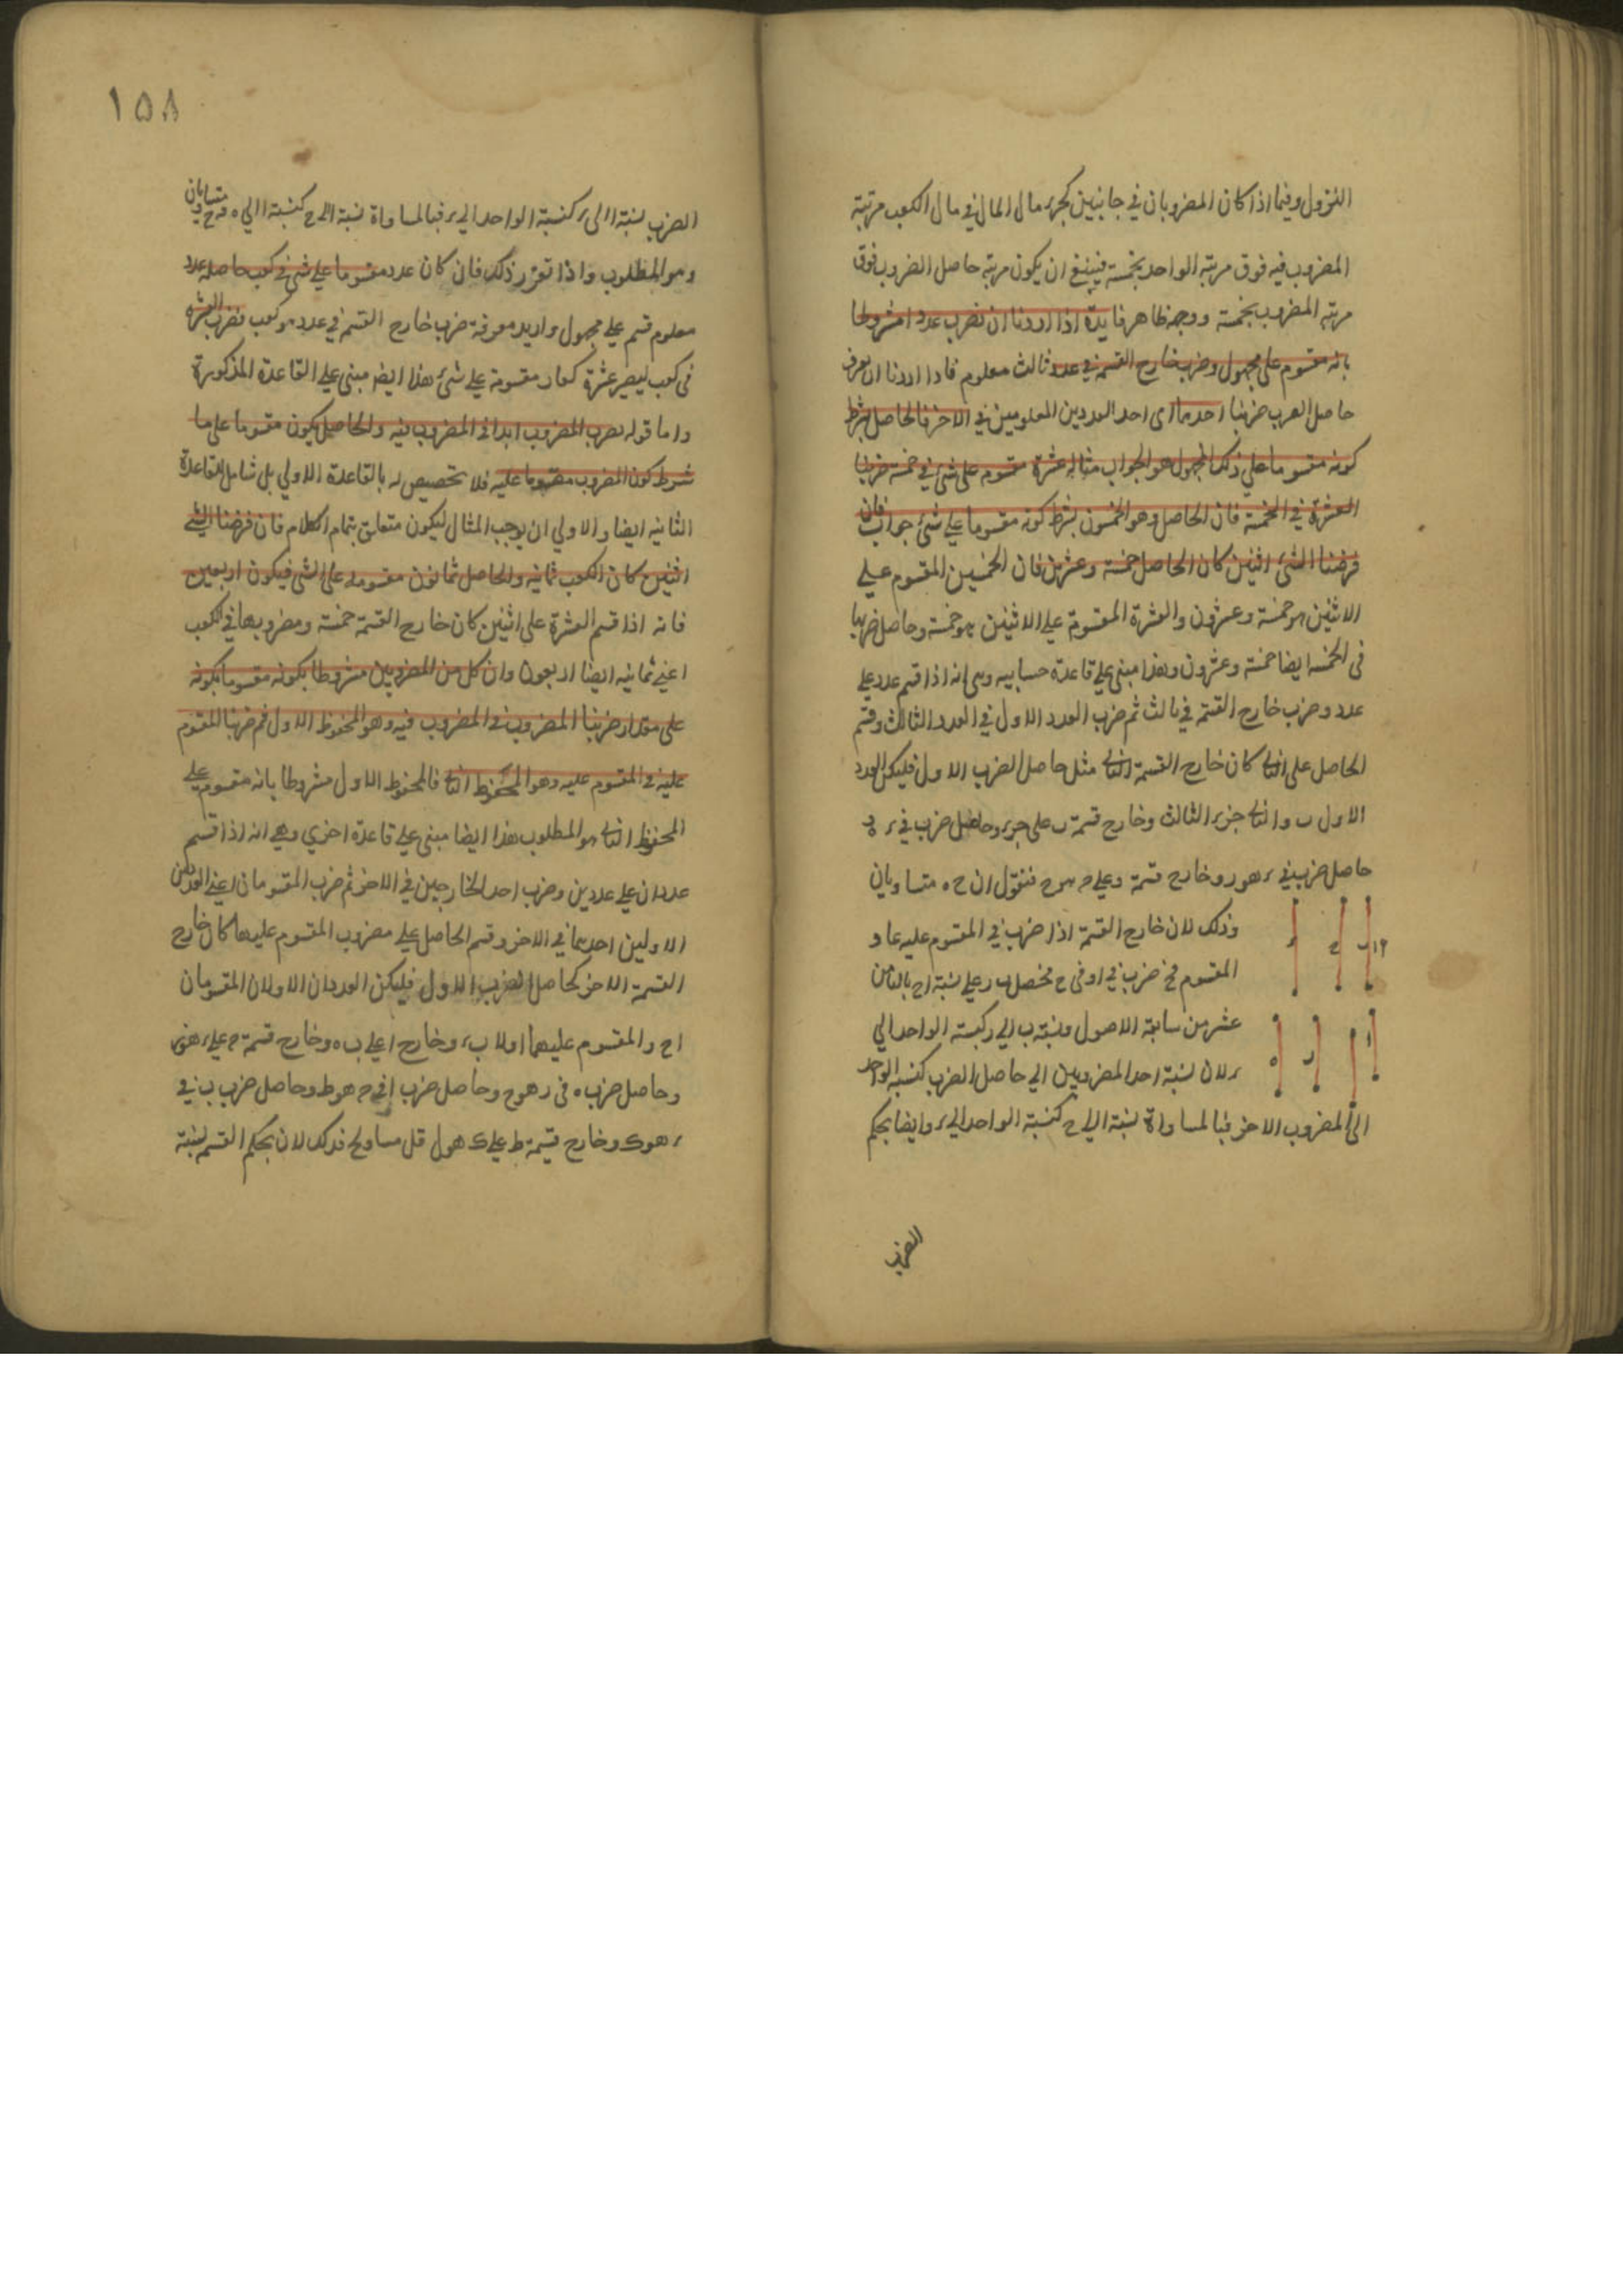 النزول وفيما اذا كان المضروبان في جانبين كجزء مال المال في مال الكعب مرتبة
المضروب فيه فوق مرتبة الواحد بخمسة فينبغي ان يكون مرتبة حاصل الضرب فوق
مرتبة المضروب بخمسة ووجهه ظاهر فايدة اذا اردنا ان نضرب عددا مشروطا
بانه مقسوم على مجهول وضرب خارج القسمة في عدد ثالث معلوم فاذا اردنا ان نعرف
حاصل الضرب ضربنا احدهما اى احد العددين المعلومين في الاخر فالحاصل بشرط
كونه مقسوما على ذلك المجهول هو الجواب مثاله عشرة مقسوم على شئ في خمسة ضربنا
العشرة في الخمسة فان الحاصل وهو الخمسون بشرط كونه مقسوما على شئ جواب فان
فرضنا الشئ اثنين كان الحاصل خمسة وعشرين فان الخمسين المقسوم على
الاثنين هو خمسة وعشرون والعشرة المقسومة على الاثنين هو خمسة وحاصل ضربها
فى الخمسة ايضا خمسة وعشرون وهذا مبنى على قاعدة حسابيه وهى انه اذا قسم عدد على
عدد وضرب خارج القسمة في ثالث ثم ضرب العدد الاول في العدد الثالث وقسم
الحاصل على الثانى كان خارج القسمة الثانى مثل حاصل الضرب الاول فليكن العدد
الاول ب والثانى ج و ر الثالث وخارج قسمة ب على ج ر وحاصل ضرب في ر ه
حاصل ضرب في ر هو د وخارج قسمة د على ح هو ح فنقول ان ح ه متساويان
وذلك لان خارج القسمة اذا ضرب في المقسوم عليه عاد
المقسوم ضرب في ا وفى ح فحصل ب د على نسبة ا ح بالثامن
عشر من سابعة الاصول ونسبة ب الى د كنسبة الواحد الى
ر لان نسبة احد المضروبين الى حاصل الضرب كنسبة الواحد
الى المضروب الاخر فبالمساواة نسبة ا الى ح كنسبة الواحد الى ر وايضا بحكم
الضرب
١٥٨
الضرب نسبة ا الى ر كنسبة الواحد الى ر فبالمساواة نسبة ا الى ح كنسبة ا الى ه فه ح متساويان
وهو المطلوب واذا تقرر ذلك فان كان عدد مقسوما على شئ في كعب حاصله عدد
معلوم قسم على مجهول واريد معرفة ضرب خارج القسمة في عدد هو كعب فضرب العشرة
فى كعب ليصير عشرة كعاب مقسومة على شئ هذا ايضا مبنى على القاعدة المذكورة
واما قوله يضرب المضروب ابدا في المضروب فيه والحاصل يكون مقسوما على ما
شرط كون المضروب مقسوما عليه فلا تخصيص له بالقاعدة الاولى بل شامل للقاعدة
الثانيه ايضا والاولى ان يوجب المثال ليكون متعلق بتمام الكلام فان فرضنا الشئ
اثنين كان الكعب ثمانية والحاصل ثمانون مقسومه على الشئ فيكون اربعين
فانه اذا قسم العشرة على اثنين كان خارج القسمة خمسة ومضروبها في الكعب
اعنى ثمانيه ايضا اربعون وان كل من المضروبين مشروطا بكونه مقسوما بكونه
على مقدار ضربنا المضروب في المضروب فيه وهو المحفوظ الاول ثم ضربنا المقسوم
عليه في المقسوم عليه وهو المحفوظ الثانى فالمحفوظ الاول مشروطا بانه مقسوم على
المحفوظ الثانى هو المطلوب هذا ايضا مبنى على قاعدة اخرى وهى انه اذا قسم
عددان على عددين وضرب احد الخارجين في الاخر ثم ضرب المقسومان اعنى العددين
الاولين احدهما في الاخر وقسم الحاصل على مضروب المقسوم عليهما كان خارج
القسمة الاخر كحاصل الضرب الاول فليكن العددان الاولان المقسومان
ا ح والمقسوم عليهما اولا ب ر وخارج ا على ب ه وخارج قسمة ح على ر هو
وحاصل ضرب ه فى ر هو ح وحاصل ضرب ا فى ح هو ط وحاصل ضرب ب في
ر هو ك وخارج قسمة ط على ك هو ل قل مساو لح فذلك لان بحكم القسم نسبة